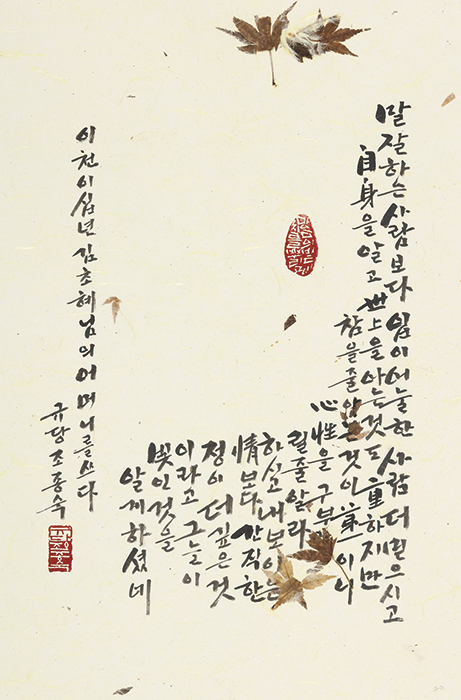 말 잘하는 사람보다 입이 어눌한 사람 더 믿으시고
自身을 알고 世上을 아는 것도 重하지만
참을 줄 아는 것이 이니
心性을 구부
릴 줄 알라
하시고 내보이는
情보다 간직한
정이 더 깊은 것
이라고 그늘이
빛인 것을
알게 하셨네
이천이십년 김초혜님의 어머니를 쓰다
규당 조종숙